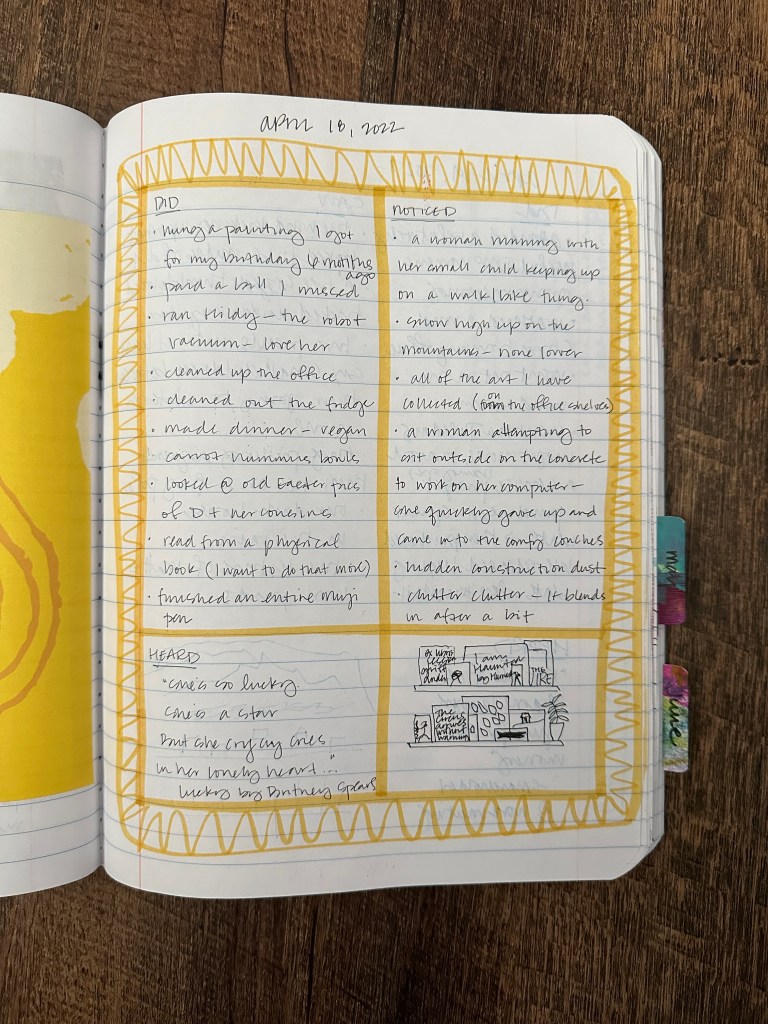 APRIL 18, 2022
DID
• hung a painting I got
for my birthday 6 months
ago
• paid a bill I missed
• ran Hildy – the robot
vacuum – love her
• cleaned up the office
• cleaned out the fridge
• made dinner – vegan
carrot hummus bowls
• looked @ old Easter pics
of D + her cousins
• read from a physical
book (I want to do that more)
• finished an entire muji
pen
NOTICED
• a woman running with
her small child keeping up
on a walk/bike thing.
• snow high up on the
mountains – none lower
• all of the art I have
collected (on the office shelves)
• a woman attempting to
sit outside on the concrete
to work on her computer –
she quickly gave up and
came in to the comfy couches
• hidden construction dust
• clutter clutter – it blends
in after a bit
HEARD
"she's so lucky
she's a star
But she cry cry cries
in her lonely heart..."
Lucky by Britney Spears
I am
Haunted
by
THE
The
Circus
arrives
without
warning
may
june